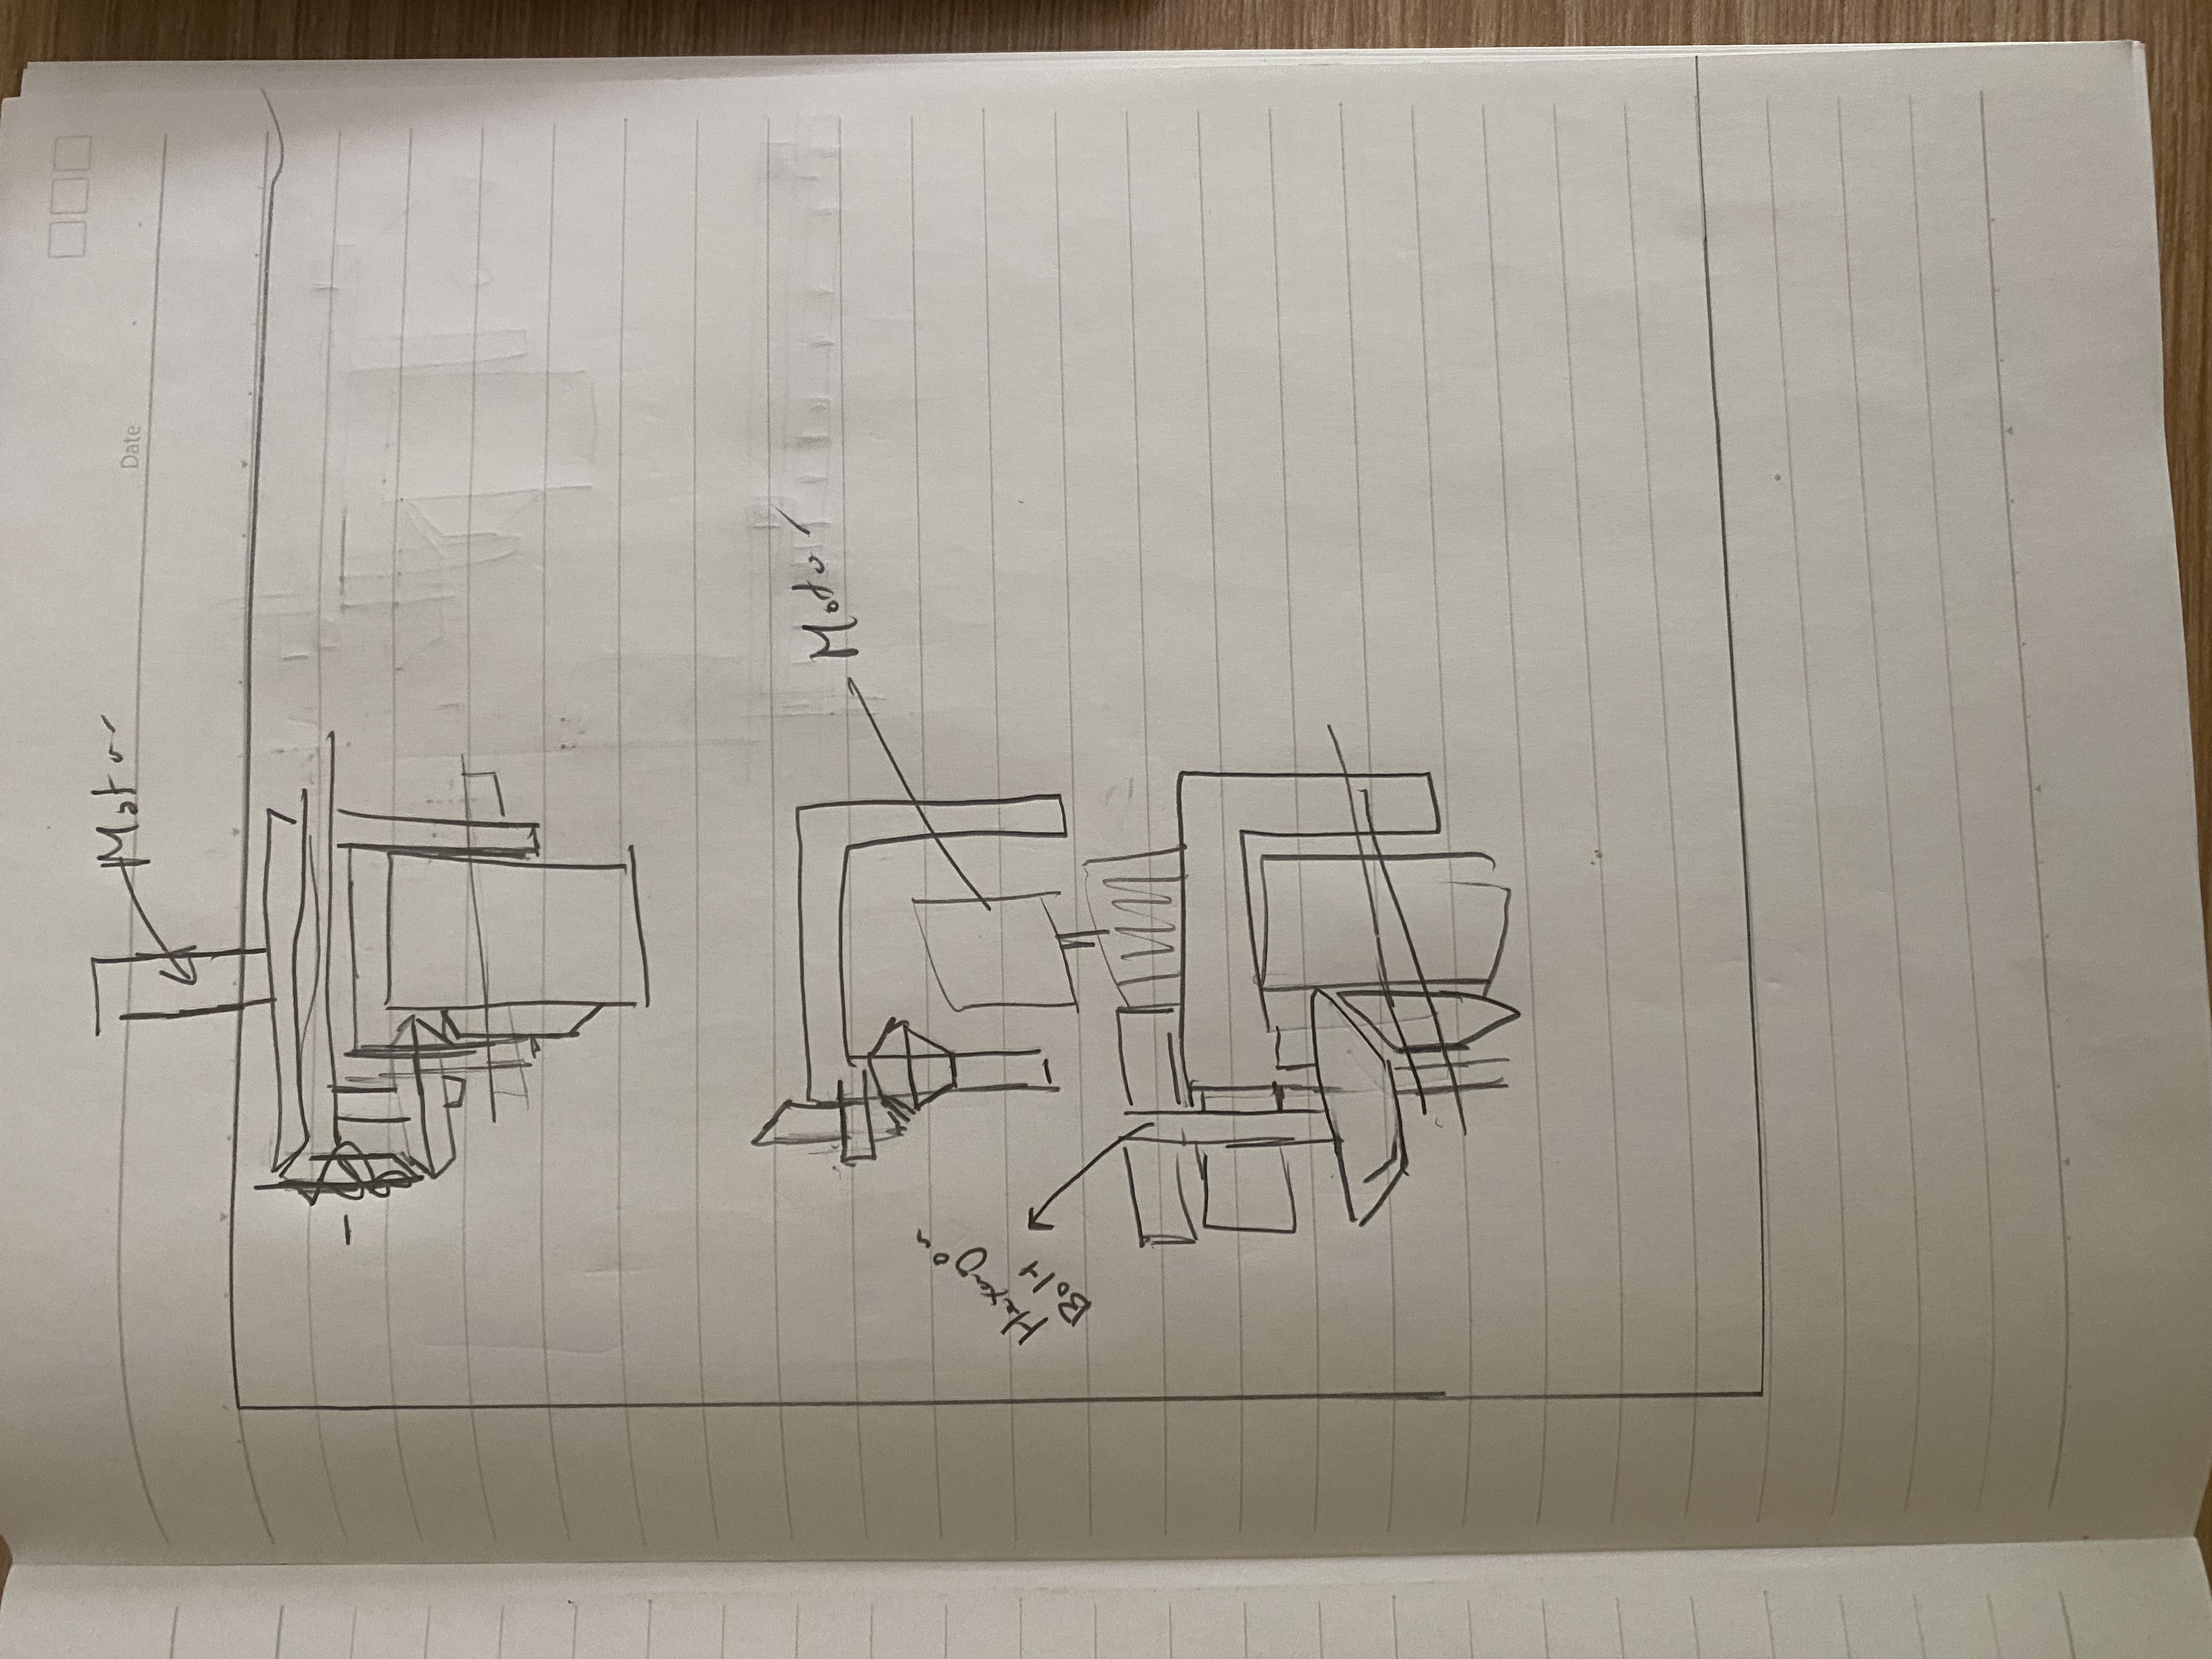 Date
Motor
Motor
Hexagon
Bolt